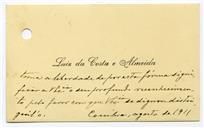 Luiz da Costa e Almeida
toma a liberdade de por esta forma signi
ficar a V. Ex.ª o seu profundo reconhecimen
to pelo favor com que V. Ex.ª se dignou distin
guil-o. Coimbra, agosto de 1911